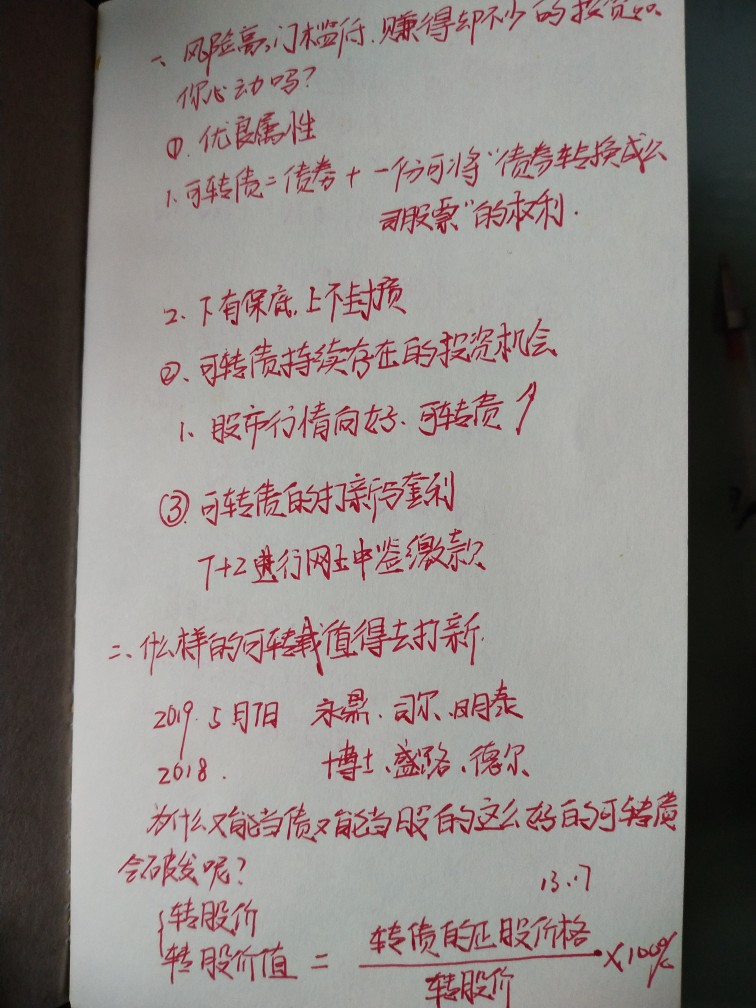 一、风险高、门槛低、赚得却不少的投资品
你心动吗?
①、优良属性
1、可转债=债券+一份可将“债券转换成公
司股票”的权利.
2、下有保底,上不封顶
②、可转债持续存在的投资机会
1、股市行情向好、可转债↑
③ 可转债的打新与套利
T+2进行网上中签缴款
二、什么样的可转载值得去打新.
2019.5月7日 永鼎、司尔、明泰
2018. 博士、盛路、德尔
为什么又能当债又能当股的这么好的可转债
会破发呢?
13.17
转股价
转股价值 = 转债的正股价格 ×100%
转股价